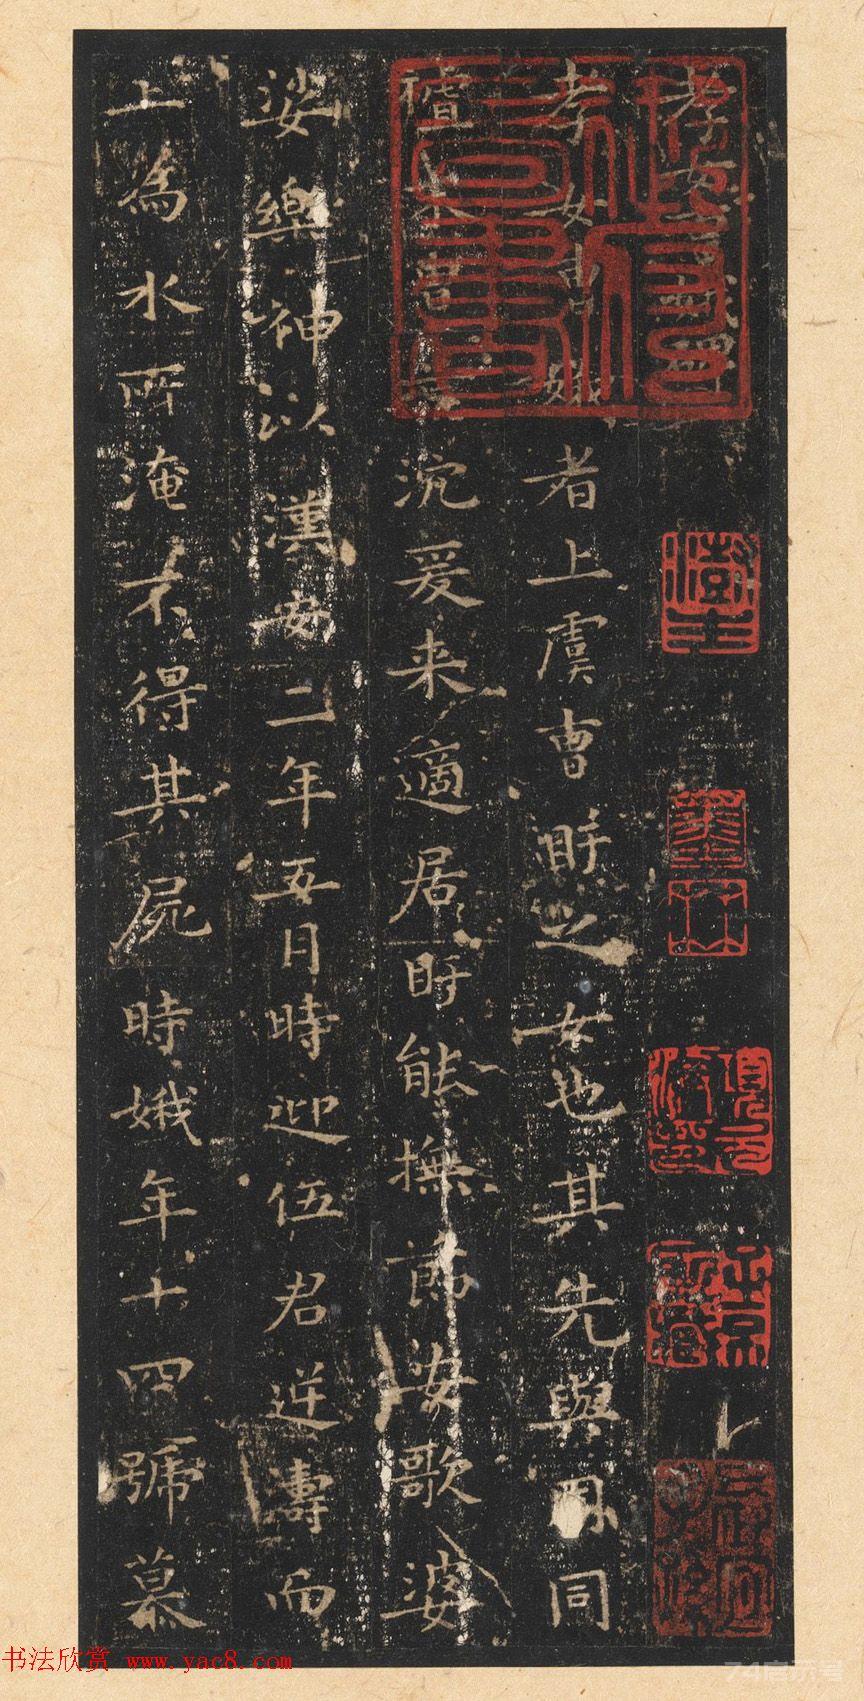 孝女曹娥碑
孝女曹娥者上虞曹盱之女也其先與周同
祖末曹荒沉爰来適居盱能撫節安歌婆
娑樂神以漢安二年五月時迎伍君逆濤而
上為水所淹不得其屍時娥年十四號慕
书法欣赏 www.yac8.com